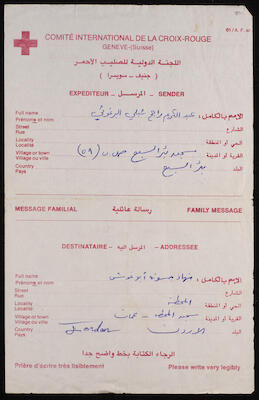 01/A.F. 80
COMITÉ INTERNATIONAL DE LA CROIX-ROUGE
GENÈVE-(Suisse)
اللجنة الدولية للصليب الأحمر
( جنيف - سويسرا )
EXPEDITEUR - المرسـل - SENDER
Full name
Prénoms et nom
الاسم بالكامل :
Street
Rue
الشارع
Locality
Localité
الحي او المنطقة
Village or town
Village ou ville
القرية او المدينة
سجن بئر السبع ص.ب (٥٩)
Country
Pays
البلد
بئر السبع
MESSAGE FAMILIAL رسالة عائلية FAMILY MESSAGE
DESTINATAIRE - المرسل اليه - ADDRESSEE
Full name
Prénoms et nom
الاسم بالكامل :
Street
Rue
الشارع
Locality
Localité
الحي او المنطقة
المحطة
Village or town
Village ou ville
القرية او المدينة
عمان
Country
Pays
البلد
الاردن Jordan
الرجاء الكتابة بخط واضح جدا
Prière d'écrire très lisiblement Please write very legibly